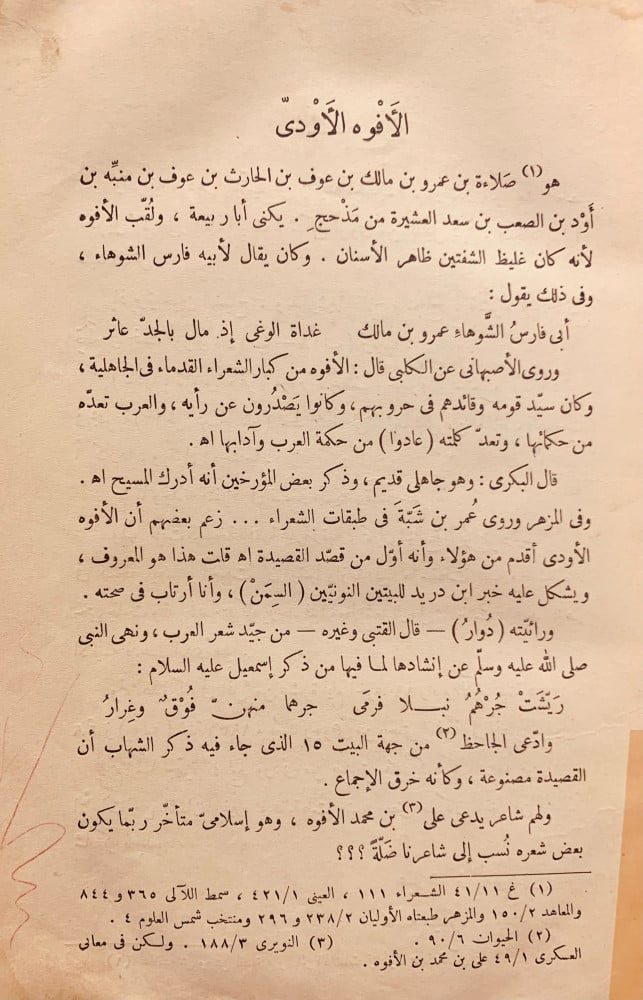 الأَفْوه الأَوْدىّ
هو(١) صَلاءة بن عمرو بن مالك بن عوف بن الحارث بن عوف بن منبِّه بن
أَوْد بن الصعب بن سعد العشيرة من مَذْحِج . يكنى أبا ربيعة ، ولُقّب الأفوه
لأنه كان غليظ الشفتين ظاهر الأسنان . وكان يقال لأبيه فارس الشوهاء ،
وفى ذلك يقول :
أبى فارسُ الشَّوهاءِ عمرو بن مالك غداة الوغى إذ مال بالجدّ عاثر
وروى الأصبهانى عن الكلبى قال : الأفوه من كبار الشعراء القدماء فى الجاهلية ،
وكان سيّد قومه وقائدهم فى حروبهم ، وكانوا يَصْدُرون عن رأيه ، والعرب تعدّه
من حكمائها ، وتعدّ كلمته ( عادوا ) من حكمة العرب وآدابها اهـ .
قال البكرى : وهو جاهلى قديم ، وذكر بعض المؤرخين أنه أدرك المسيح اهـ .
وفى المزهر وروى عُمر بن شَبّةَ فى طبقات الشعراء ... زعم بعضهم أن الأفوه
الأودى أقدم من هؤلاء وأنه أوّل من قصّد القصيدة اهـ قلت هذا هو المعروف ،
ويشكل عليه خبر ابن دريد للبيتين النونيّين ( السِمَنْ ) ، وأنا أرتاب فى صحته .
ورائيّته ( دُوارُ ) — قال القتبى وغيره — من جيّد شعر العرب ، ونهى النبى
صلى الله عليه وسلّم عن إنشادها لما فيها من ذكر إسمعيل عليه السلام :
رَيّشَتْ جُرْهُمُ نبلا فرمَى جرهما منهنّ فُوْقٌ وغِرارُ
وادّعى الجاحظ(٢) من جهة البيت ١٥ الذى جاء فيه ذكر الشهاب أن
القصيدة مصنوعة ، وكأنه خرق الإجماع .
ولهم شاعر يدعى على(٣) بن محمد الأفوه ، وهو إسلامىّ متأخّر ربّما يكون
بعض شعره نُسب إلى شاعرنا ضَلّةً ؟؟؟
(١) غ ٤١/١١ الشعراء ١١١ ، العينى ٤٢١/١ ، سمط اللآلى ٣٦٥ و ٨٤٤
والمعاهد ١٥٠/٢ والمزهر طبعتاه الأوليان ٢٣٨/٢ و ٢٩٦ ومنتخب شمس العلوم ٤ .
(٢) الحيوان ٩٠/٦ . (٣) النويرى ١٨٨/٣ . ولكن فى معانى
العسكرى ٤٩/١ على بن محمد بن الأفوه .